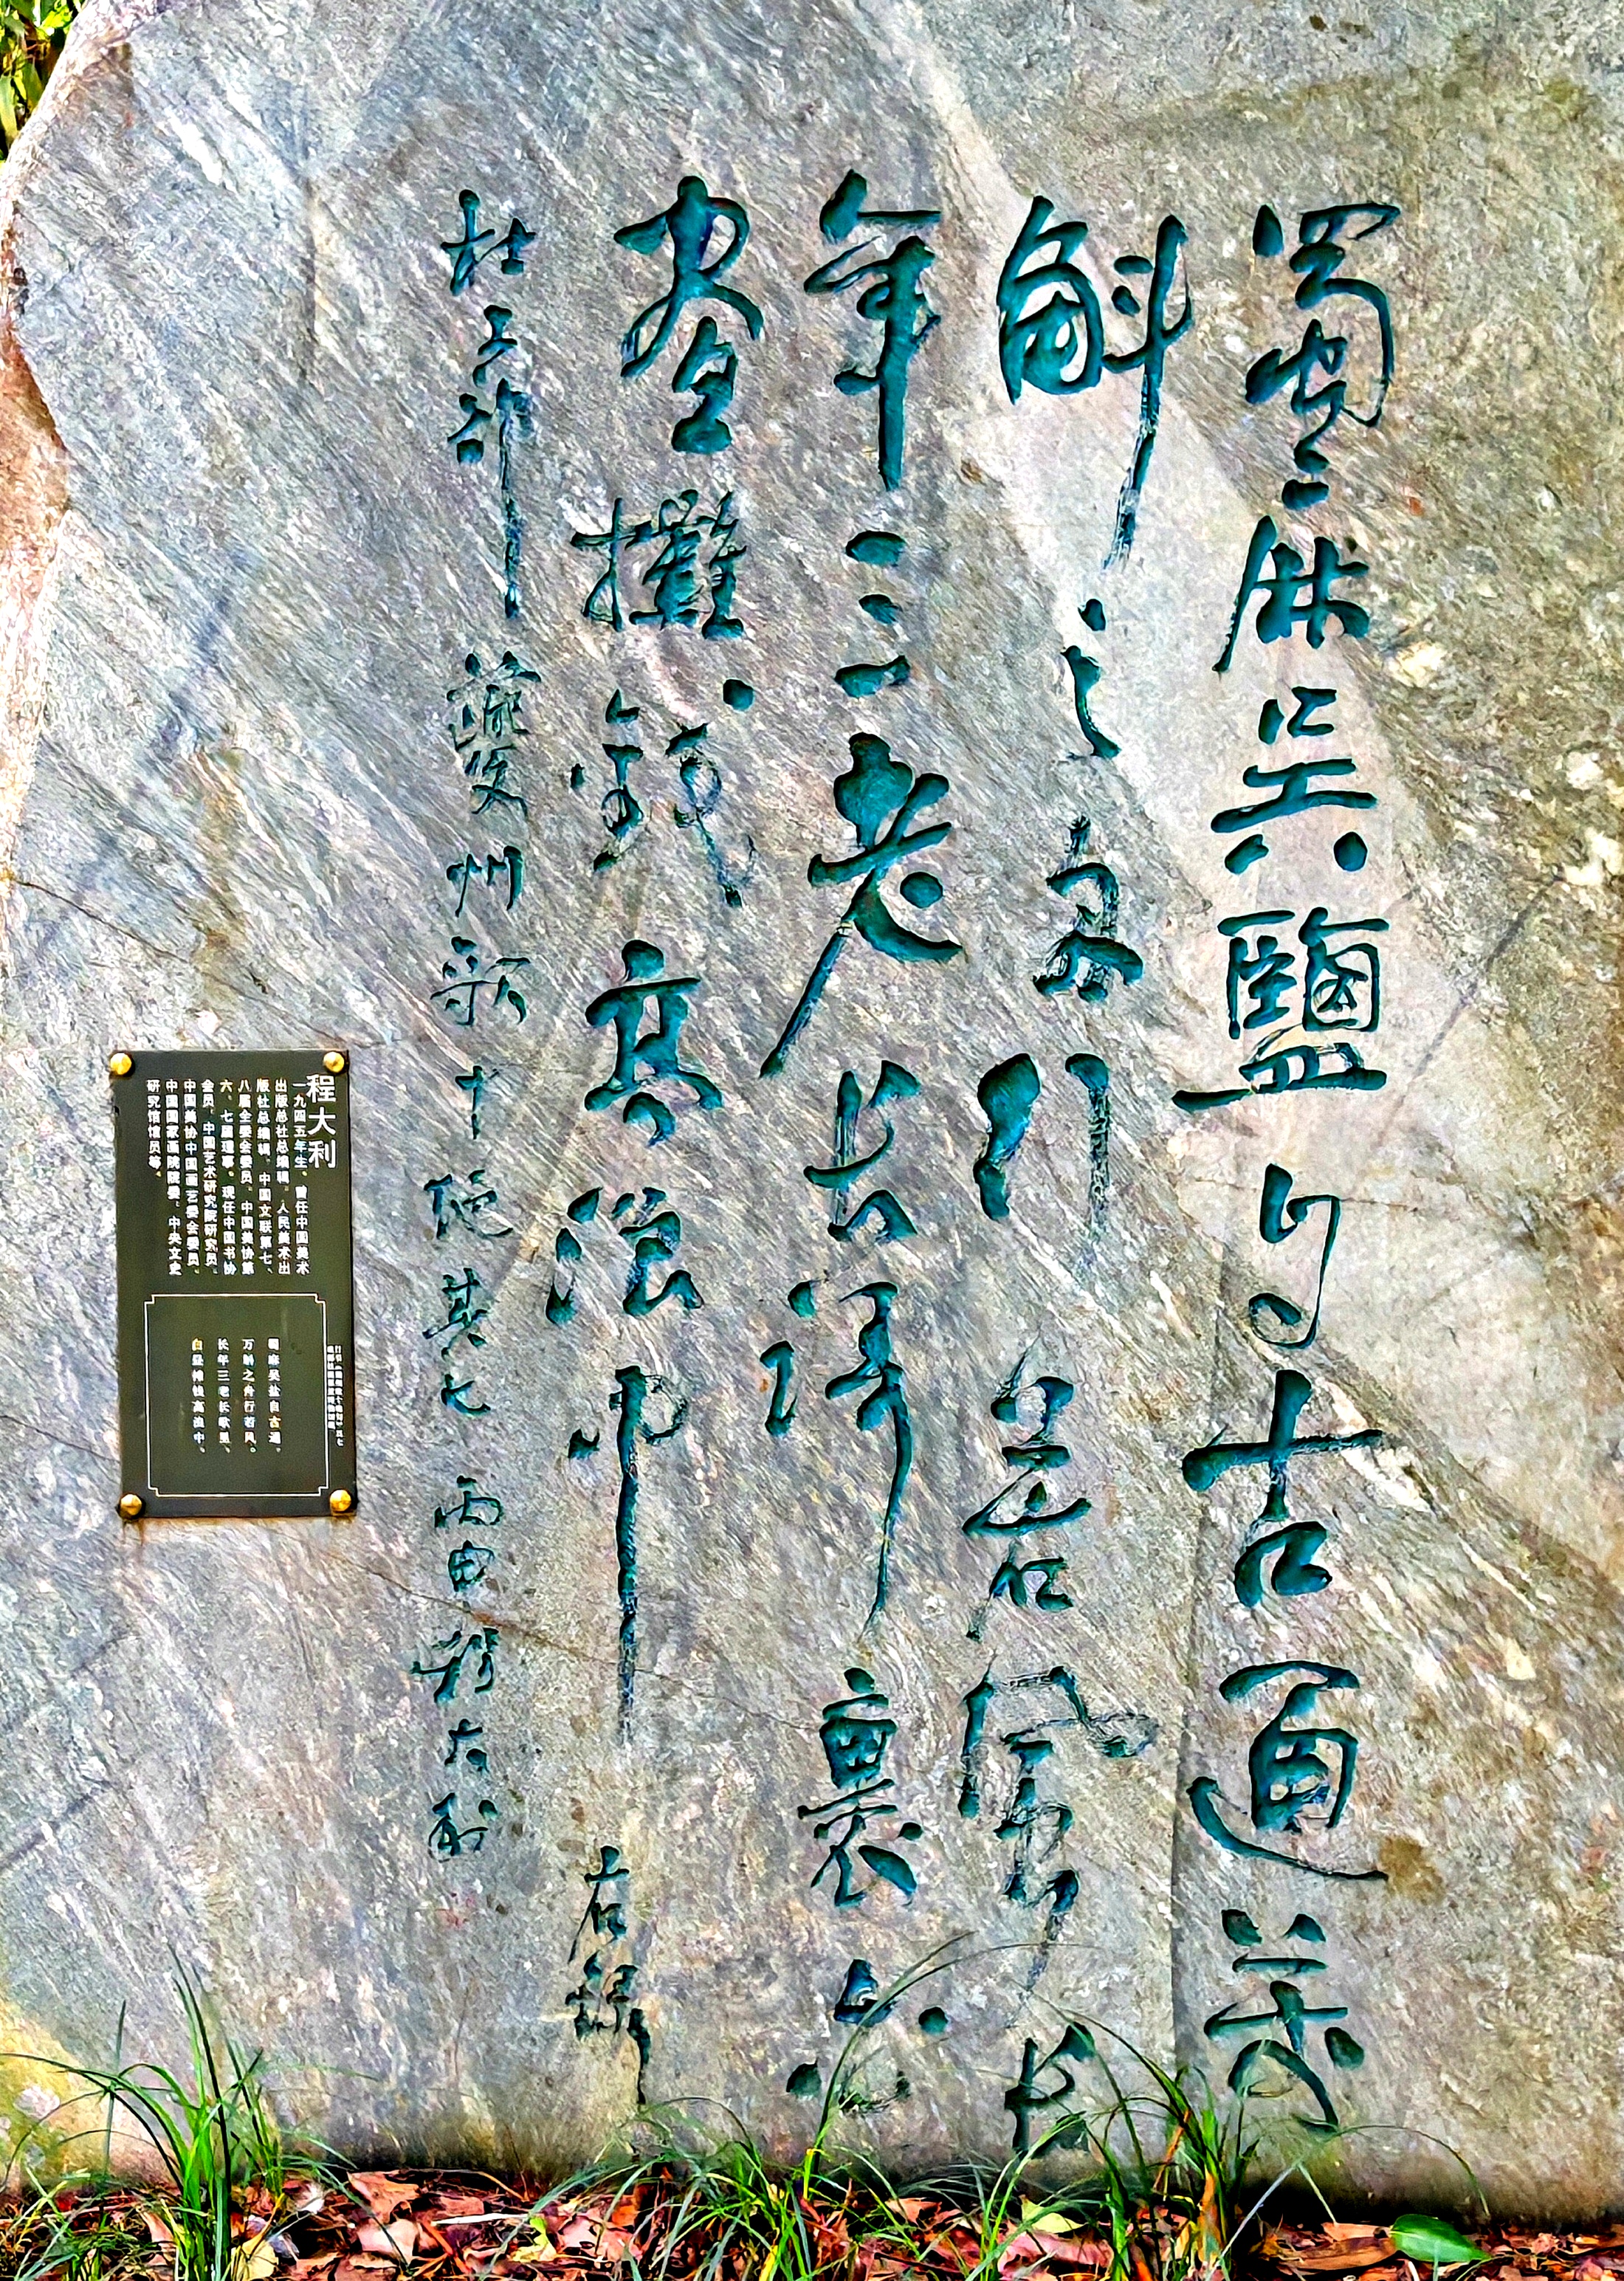 蜀麻吳鹽自古通萬
斛之舟行若風長
年三老長謌裏白
晝攤錢高浪中 右録
杜工部夔州歌十絕其七 丙申程大利
程大利
一九四五年生，曾任中国美术
出版总社总编辑，人民美术出
版社总编辑，中国文联第七、
八届全委会委员，中国美协第
六、七届理事。现任中国书协
会员，中国艺术研究院研究员，
中国美协中国画艺委会委员，
中国国家画院院委，中央文史
研究馆馆员等。
蜀麻吴盐自古通，
万斛之舟行若风。
长年三老长歌里，
白昼摊钱高浪中。